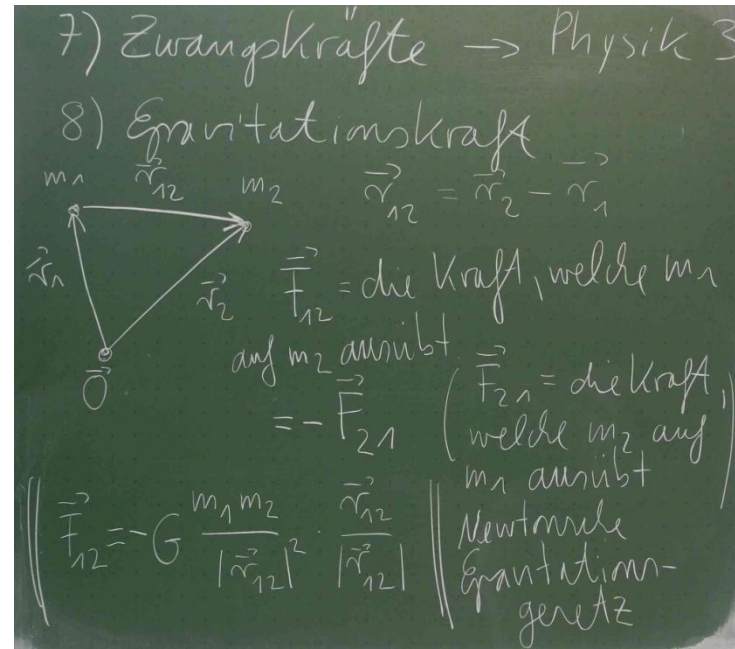 7) Zwangskräfte → Physik 3
8) Gravitationskraft
m₁ r⃗₁₂ m₂ r⃗₁₂ = r⃗₂ − r⃗₁
r⃗₁ r⃗₂ F⃗₁₂ = die Kraft, welche m₁
auf m₂ ausübt
O⃗
= − F⃗₂₁ (F⃗₂₁ = die Kraft,
welche m₂ auf
m₁ ausübt)
F⃗₁₂ = −G m₁m₂ / |r⃗₁₂|² · r⃗₁₂ / |r⃗₁₂|
Newtonsche
Gravitations-
gesetz